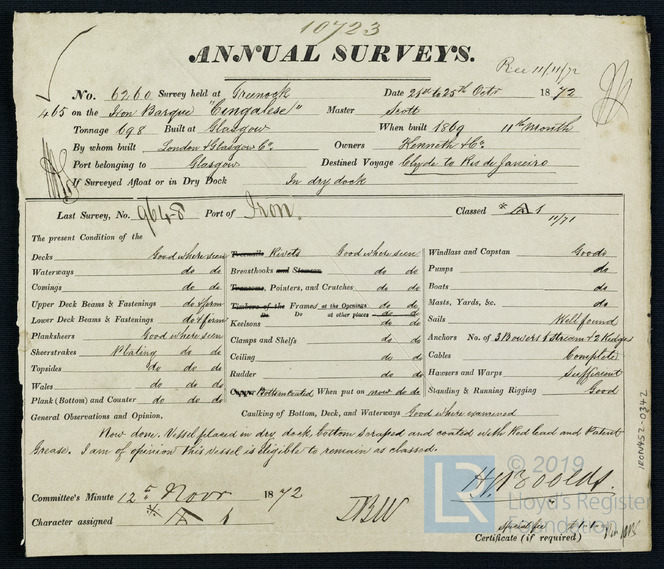 10723
ANNUAL SURVEYS.
Rec 11/11/72
No. 6260 Survey held at Greenock Date 21st to 25th Octr 1872
465 on the Iron Barque "Cingalese" Master Scott
Tonnage 698 Built at Glasgow When built 1869 11th Month
By whom built London & Glasgow Co. Owners Kenneth & Co.
Port belonging to Glasgow Destined Voyage Clyde to Rio de Janeiro
If Surveyed Afloat or in Dry Dock In dry dock
Last Survey, No. 9648 Port of Iron. Classed * A 1
11/71
The present Condition of the
Decks Good where seen
Waterways do do
Comings do do
Upper Deck Beams & Fastenings do & firm
Lower Deck Beams & Fastenings do & firm
Planksheers Good where seen
Sheerstrakes Plating do do
Topsides do do do
Wales do do do
Plank (Bottom) and Counter do do do
Treenails Rivets Good where seen
Breasthooks and Stemson do do
Transoms, Pointers, and Crutches do do
Timbers of the Frames at the Openings do do
Do Do at other places do do
Keelsons do do
Clamps and Shelfs do do
Ceiling do do
Rudder do do
Copper Bottom coated When put on now do do
Windlass and Capstan Good
Pumps do
Boats do
Masts, Yards, &c. do
Sails Well found
Anchors No. of 3 Bowers 1 Stream & 2 Kedges
Cables Complete
Hawsers and Warps Sufficient
Standing & Running Rigging Good
General Observations and Opinion, Caulking of Bottom, Deck, and Waterways Good where examined
Now done, Vessel placed in dry dock, bottom scraped and coated with Red lead and Patent
Grease. I am of opinion this vessel is eligible to remain as classed.
Committee's Minute 12th Novr 1872
Character assigned * A 1
Certificate (if required)
IRON452-0342
LR
© 2019
Lloyd's Register
Foundation